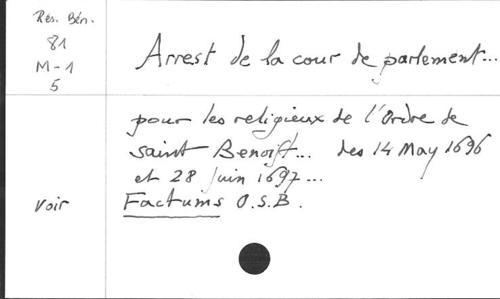 Rés. Bén.
81
M-1
5
Arrest de la cour de parlement...
pour les religieux de l'Ordre de
saint Benoist... des 14 May 1696
et 28 Juin 1697...
voir Factums O.S.B.